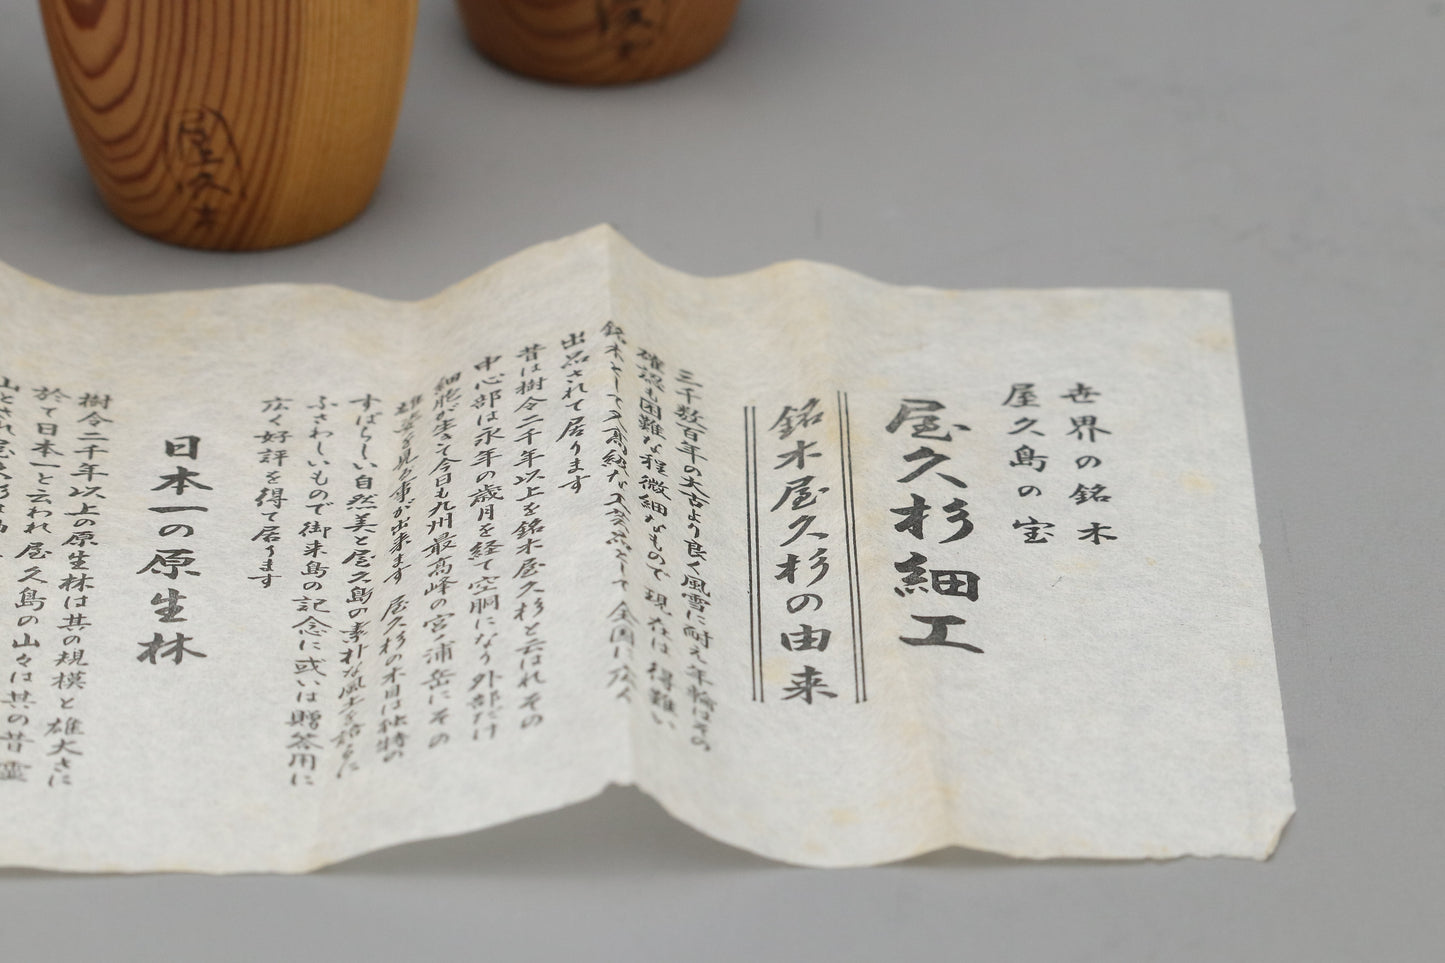 世界の銘木
屋久島の宝
屋久杉細工
銘木屋久杉の由来
三千数百年の太古より良く風雪に耐え年輪はその
確認も困難な程微細なもので現在は得難い
銘木として入高級な工芸品として全国に広く
出品されて居ります
昔は樹令二千年以上を銘木屋久杉と云はれその
中心部は永年の歳月を経て空胴になり外部だけ
細胞が生きて今日も九州最高峰の宮ノ浦岳にその
雄姿を見る事が出来ます 屋久杉の木目は独特の
すばらしい自然美と屋久島の素朴な風土を語るに
ふさわしいもので御来島の記念に或いは贈答用に
広く好評を得て居ります
日本一の原生林
樹令二千年以上の原生林は其の規模と雄大さに
於て日本一と云われ屋久島の山々は其の昔霊
山とされ屋久杉は
屋久杉